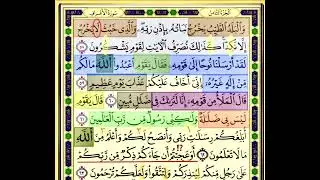 سورة الأعراف
الجزء الثامن
وَالْبَلَدُ الطَّيِّبُ يَخْرُجُ نَبَاتُهُ بِإِذْنِ رَبِّهِ وَالَّذِي خَبُثَ لَا يَخْرُجُ
إِلَّا نَكِدًا كَذَٰلِكَ نُصَرِّفُ الْآيَاتِ لِقَوْمٍ يَشْكُرُونَ ٥٨
لَقَدْ أَرْسَلْنَا نُوحًا إِلَىٰ قَوْمِهِ فَقَالَ يَا قَوْمِ اعْبُدُوا اللَّهَ مَا لَكُم
مِّنْ إِلَٰهٍ غَيْرُهُ إِنِّي أَخَافُ عَلَيْكُمْ عَذَابَ يَوْمٍ عَظِيمٍ ٥٩
قَالَ الْمَلَأُ مِن قَوْمِهِ إِنَّا لَنَرَاكَ فِي ضَلَالٍ مُّبِينٍ ٦٠ قَالَ يَا قَوْمِ
لَيْسَ بِي ضَلَالَةٌ وَلَٰكِنِّي رَسُولٌ مِّن رَّبِّ الْعَالَمِينَ ٦١
أُبَلِّغُكُمْ رِسَالَاتِ رَبِّي وَأَنصَحُ لَكُمْ وَأَعْلَمُ مِنَ اللَّهِ
مَا لَا تَعْلَمُونَ ٦٢ أَوَعَجِبْتُمْ أَن جَاءَكُمْ ذِكْرٌ مِّن رَّبِّكُمْ
عَلَىٰ رَجُلٍ مِّنكُمْ لِيُنذِرَكُمْ وَلِتَتَّقُوا وَلَعَلَّكُمْ تُرْحَمُونَ